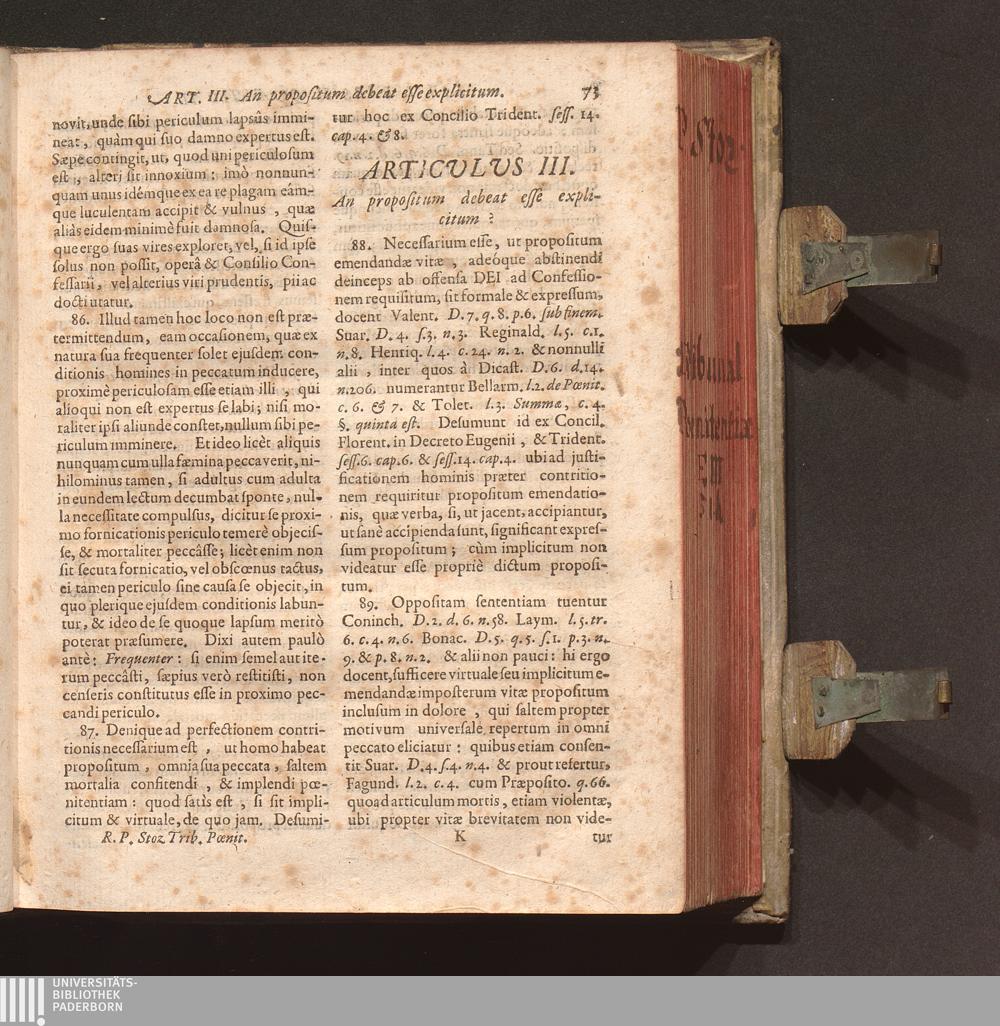 ART. III. An propositum debeat esse explicitum. 73
novit, unde sibi periculum lapsûs immi-
neat, quàm qui suo damno expertus est.
Sæpe contingit, ut, quod uni periculosum
est, alteri sit innoxium: imò nonnun-
quam unus idémque ex ea re plagam eám-
que luculentam accipit & vulnus, quæ
aliàs eidem minimè fuit damnosa. Quis-
que ergo suas vires exploret, vel, si id ipse
solus non possit, operâ & Consilio Con-
fessarii, vel alterius viri prudentis, pii ac
docti utatur.
86. Illud tamen hoc loco non est præ-
termittendum, eam occasionem, quæ ex
natura sua frequenter solet ejusdem con-
ditionis homines in peccatum inducere,
proximè periculosam esse etiam illi, qui
alioqui non est expertus se labi; nisi mo-
raliter ipsi aliunde constet, nullum sibi pe-
riculum imminere. Et ideo licèt aliquis
nunquam cum ulla fæmina peccaverit, ni-
hilominus tamen, si adultus cum adulta
in eundem lectum decumbat sponte, nul-
la necessitate compulsus, dicitur se proxi-
mo fornicationis periculo temerè objecis-
se, & mortaliter peccâsse; licèt enim non
sit secuta fornicatio, vel obscœnus tactus,
ei tamen periculo sine causa se objecit, in
quo plerique ejusdem conditionis labun-
tur, & ideo de se quoque lapsum meritò
poterat præsumere. Dixi autem paulò
antè: Frequenter: si enim semel aut ite-
rum peccâsti, sæpius verò restitisti, non
censeris constitutus esse in proximo pec-
candi periculo.
87. Denique ad perfectionem contri-
tionis necessarium est, ut homo habeat
propositum, omnia sua peccata, saltem
mortalia confitendi, & implendi pœ-
nitentiam: quod satìs est, si sit impli-
citum & virtuale, de quo jam. Desumi-
R. P. Stoz Trib. Pœnit.
tur hoc ex Concilio Trident. sess. 14.
cap. 4. & 8.
ARTICULUS III.
An propositum debeat esse expli-
citum?
88. Necessarium esse, ut propositum
emendandæ vitæ, adeóque abstinendi
deinceps ab offensa DEI ad Confessio-
nem requisitum, sit formale & expressum,
docent Valent. D. 7. q. 8. p. 6. sub finem.
Suar. D. 4. s. 3. n. 3. Reginald. l. 5. c. 1.
n. 8. Henriq. l. 4. c. 24. n. 2. & nonnulli
alii, inter quos à Dicast. D. 6. d. 14.
n. 206. numerantur Bellarm. l. 2. de Pœnit.
c. 6. & 7. & Tolet. l. 3. Summæ, c. 4.
§. quinta est. Desumunt id ex Concil.
Florent. in Decreto Eugenii, & Trident.
sess. 6. cap. 6. & sess. 14. cap. 4. ubi ad justi-
ficationem hominis præter contritio-
nem requiritur propositum emendatio-
nis, quæ verba, si, ut jacent, accipiantur,
ut sanè accipienda sunt, significant expres-
sum propositum; cùm implicitum non
videatur esse propriè dictum proposi-
tum.
89. Oppositam sententiam tuentur
Coninch. D. 2. d. 6. n. 58. Laym. l. 5. tr.
6. c. 4. n. 6. Bonac. D. 5. q. 5. s. 1. p. 3. n.
9. & p. 8. n. 2. & alii non pauci: hi ergo
docent, sufficere virtuale seu implicitum e-
mendandæ imposterum vitæ propositum
inclusum in dolore, qui saltem propter
motivum universale repertum in omni
peccato eliciatur: quibus etiam consen-
tit Suar. D. 4. s. 4. n. 4. & prout refertur,
Fagund. l. 2. c. 4. cum Præposito. q. 66.
quoad articulum mortis, etiam violentæ,
ubi propter vitæ brevitatem non vide-
K tur
P Stoz
Tribunal
Pœnitentiæ
UNIVERSITÄTS-
BIBLIOTHEK
PADERBORN